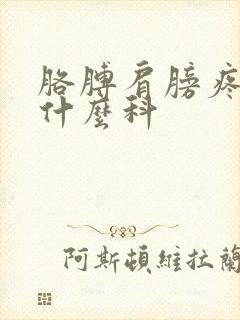 胳膊肩膀疼
什麼科
阿斯頓維拉蘭